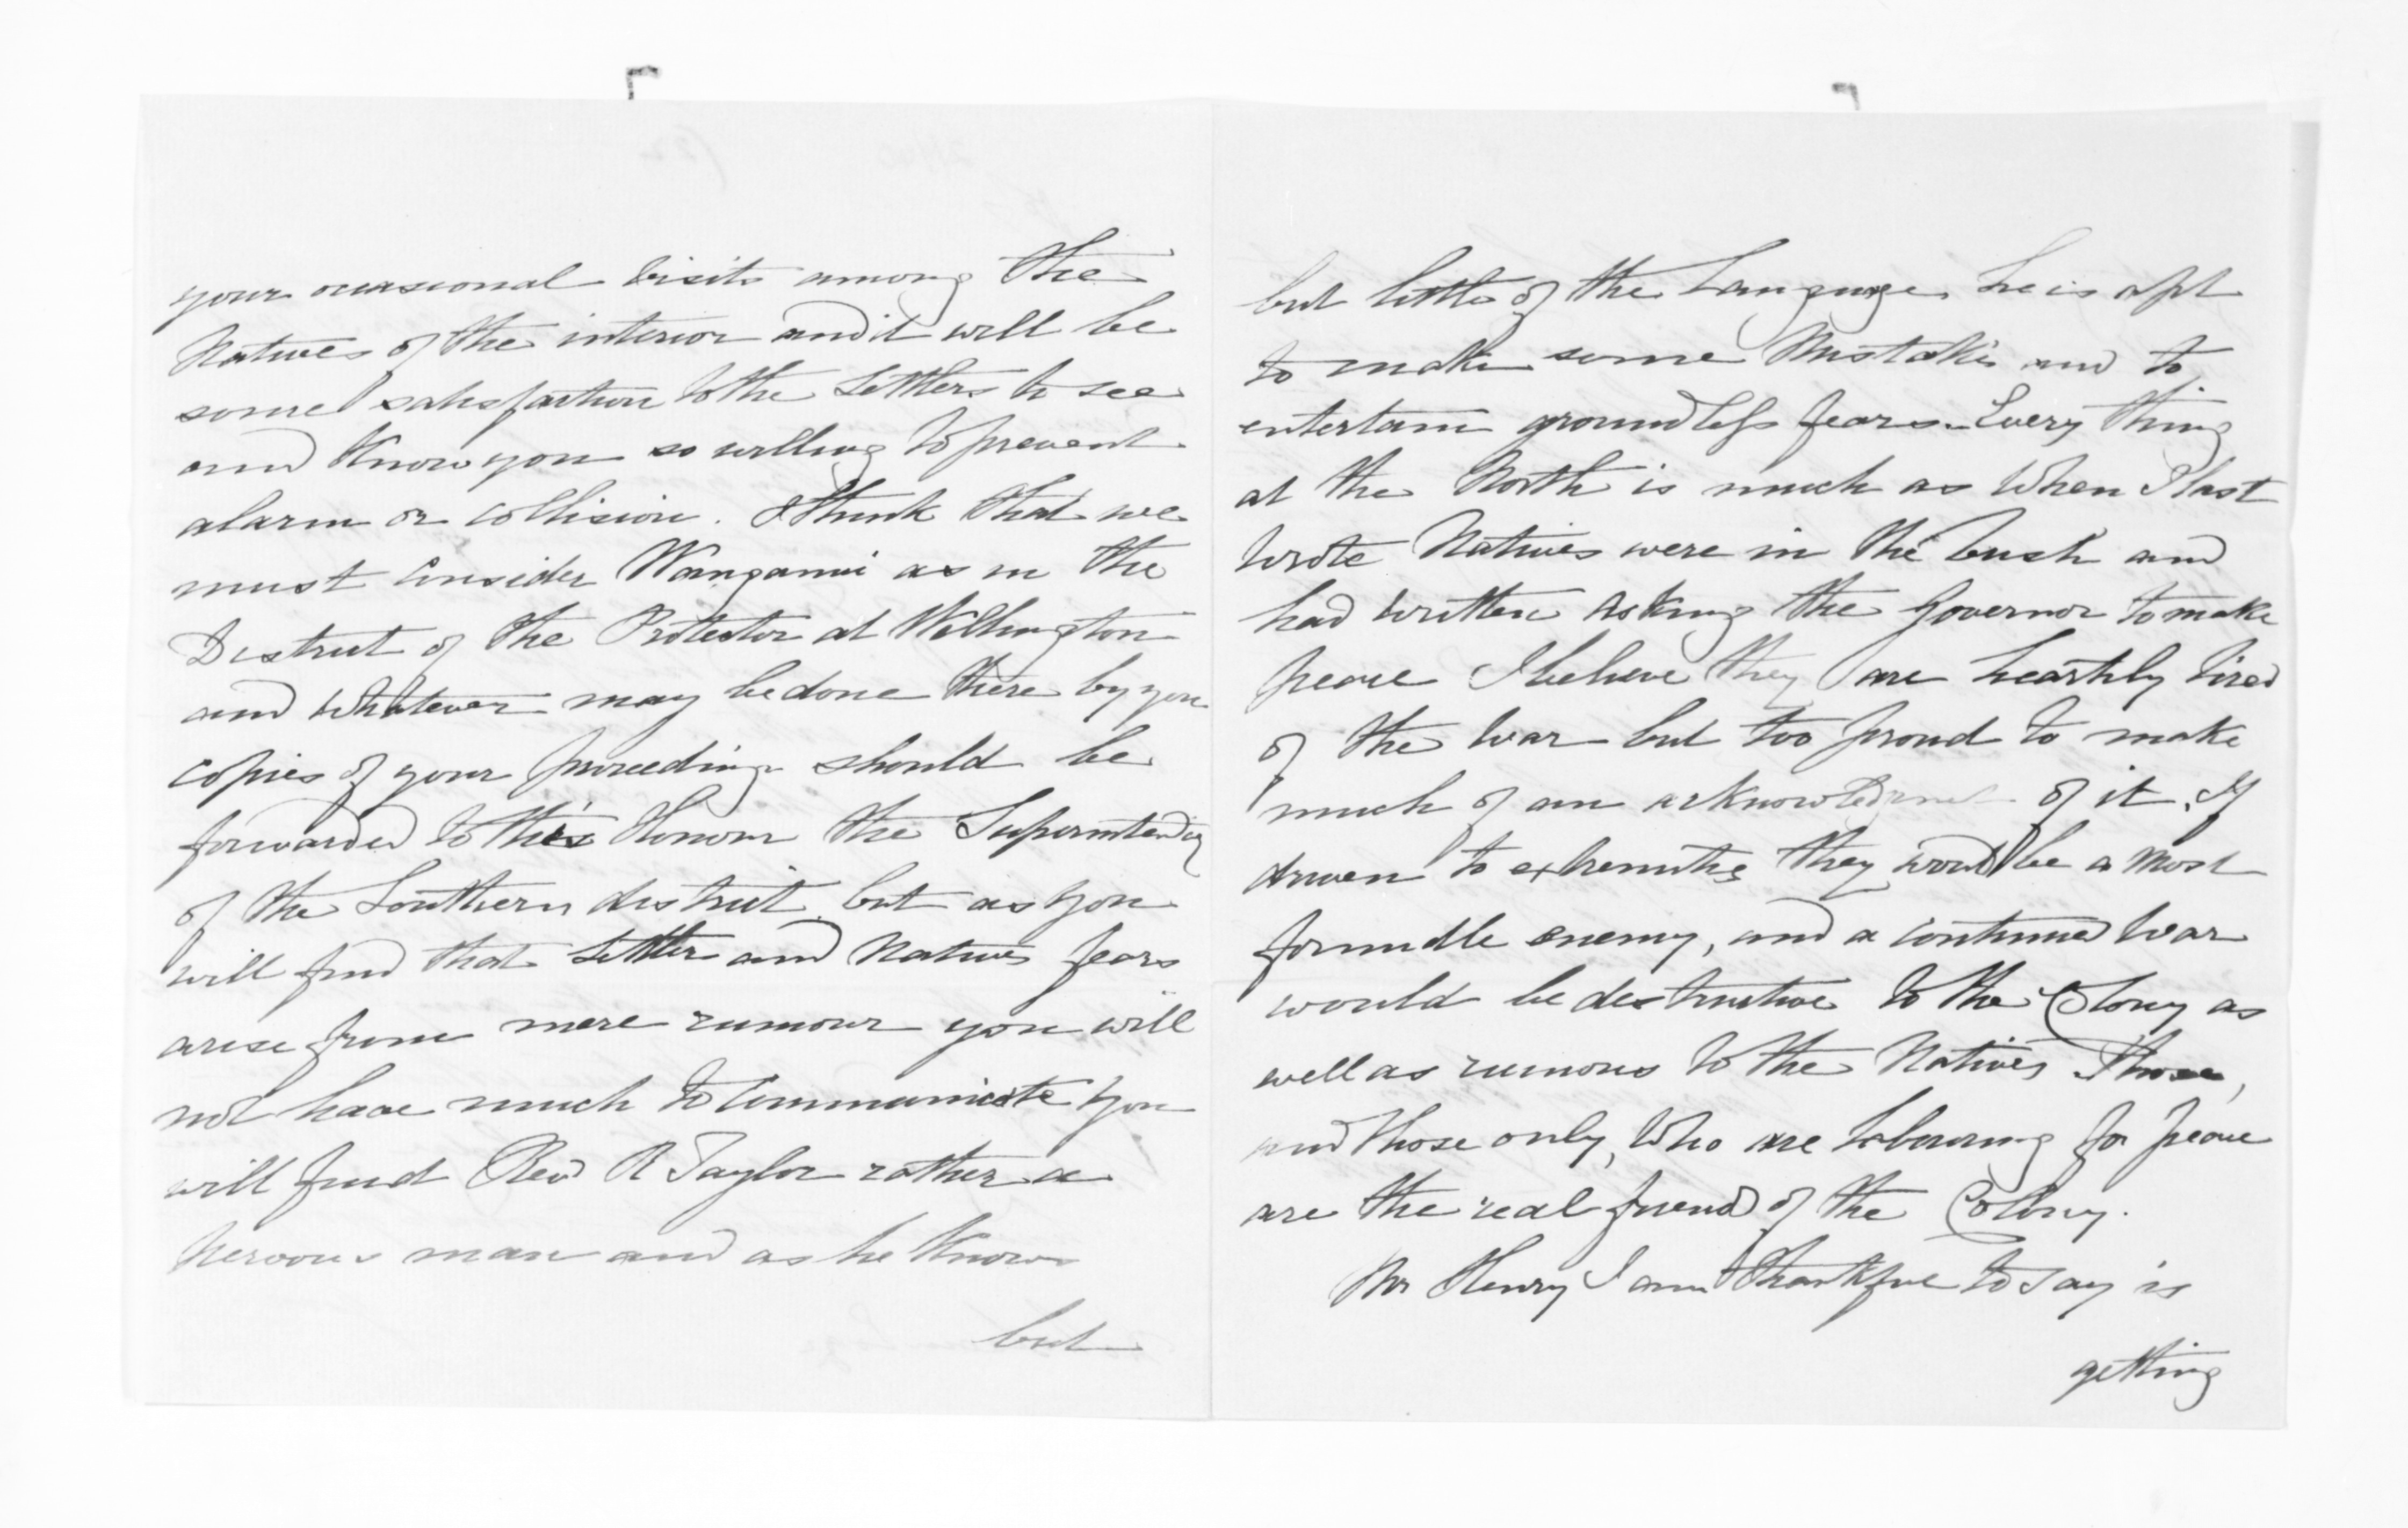 your occasional visits among the
Natives of the interior and it will be
some satisfaction to the Settlers to see
and Know you so willing to prevent
alarm or collision. I think that we
must consider Wanganui as in the
District of the Protector at Wellington
and whatever may be done there by you
copies of your proceedings should be
forwarded to His Honour the Superintendent
of the Southern district, but as you
will find that Settler and Natives fears
arise from mere rumour you will
not have much to communicate you
will find Revd R Taylor rather a
nervous man and as he Knows
but
but little of the Language, he is apt
to make some Mistakes and to
entertain groundless fears. Every thing
at the North is much as when I last
wrote Natives were in the bush and
had written asking the Governor to make
peace I believe they are heartily tired
of the War but too proud to make
much of an acknowledgment of it. If
driven to extremities they would be a most
formidle enemy, and a continued War
would be destructive to the Colony as
well as ruinous to the Natives Those,
and those only, who are labouring for peace
are the real friends of the Colony.
Mr Henry I am thankful to say is
getting